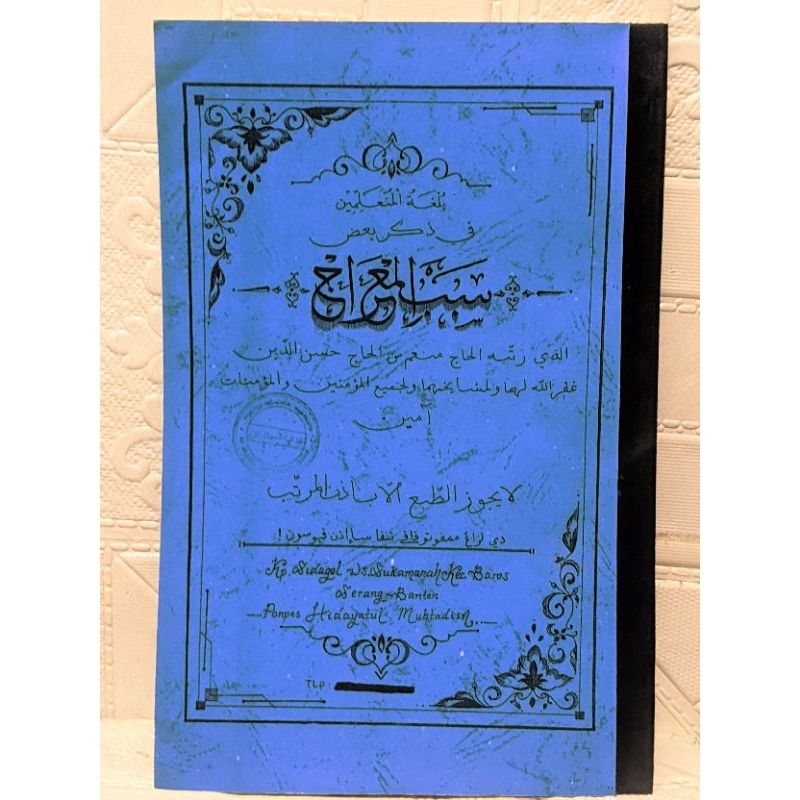 بُلْغَةُ الْمُتَعَلِّمِيْنَ
فى ذكر بعض
سَبَبُ المِعْرَاجْ
الذي رتّبه الحاج منعم بن الحاج حسن الدّين
غفر الله لهما ولمشايخهما ولجميع المؤمنين والمؤمنات
آمين
لا يجوز الطّبع الّا بإذن المرتّب
دي لراڠ ممفوتوڤافى تنفا سإذن ڤپوسون !
Kp. Sidagel Ds. Sukamanah Kec Baros
Serang - Banten
Ponpes Hidayatul Mubtadiin
TLP